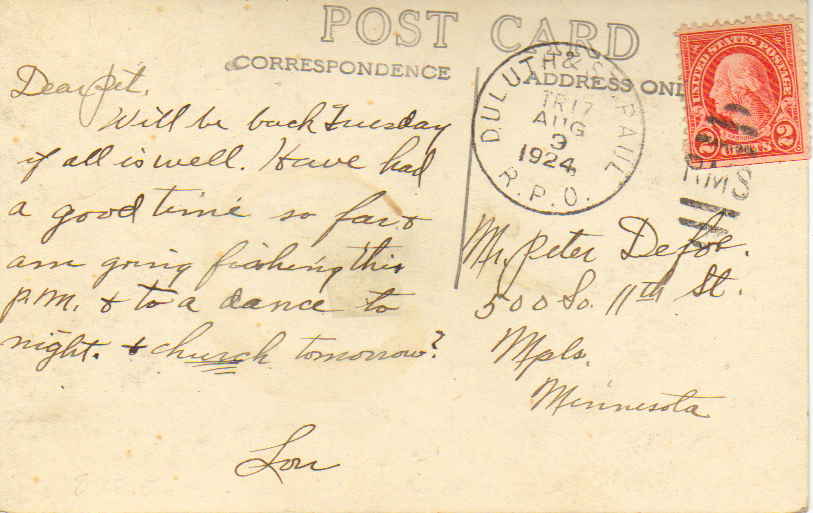 POST CARD
CORRESPONDENCE
ADDRESS ONL
Dear Pet,
Will be back Tuesday
if all is well. Have had
a good time so far &
am going fishing this
P.M. & to a dance to
night. & church tomorrow?
Lou
DULUTH & ST. PAUL
TR 17
AUG
3
1924
R.P.O.
UNITED STATES POSTAGE
2 CENTS 2
RMS
Mr. Peter Defoe.
500 So. 11th St.
Mpls.
Minnesota